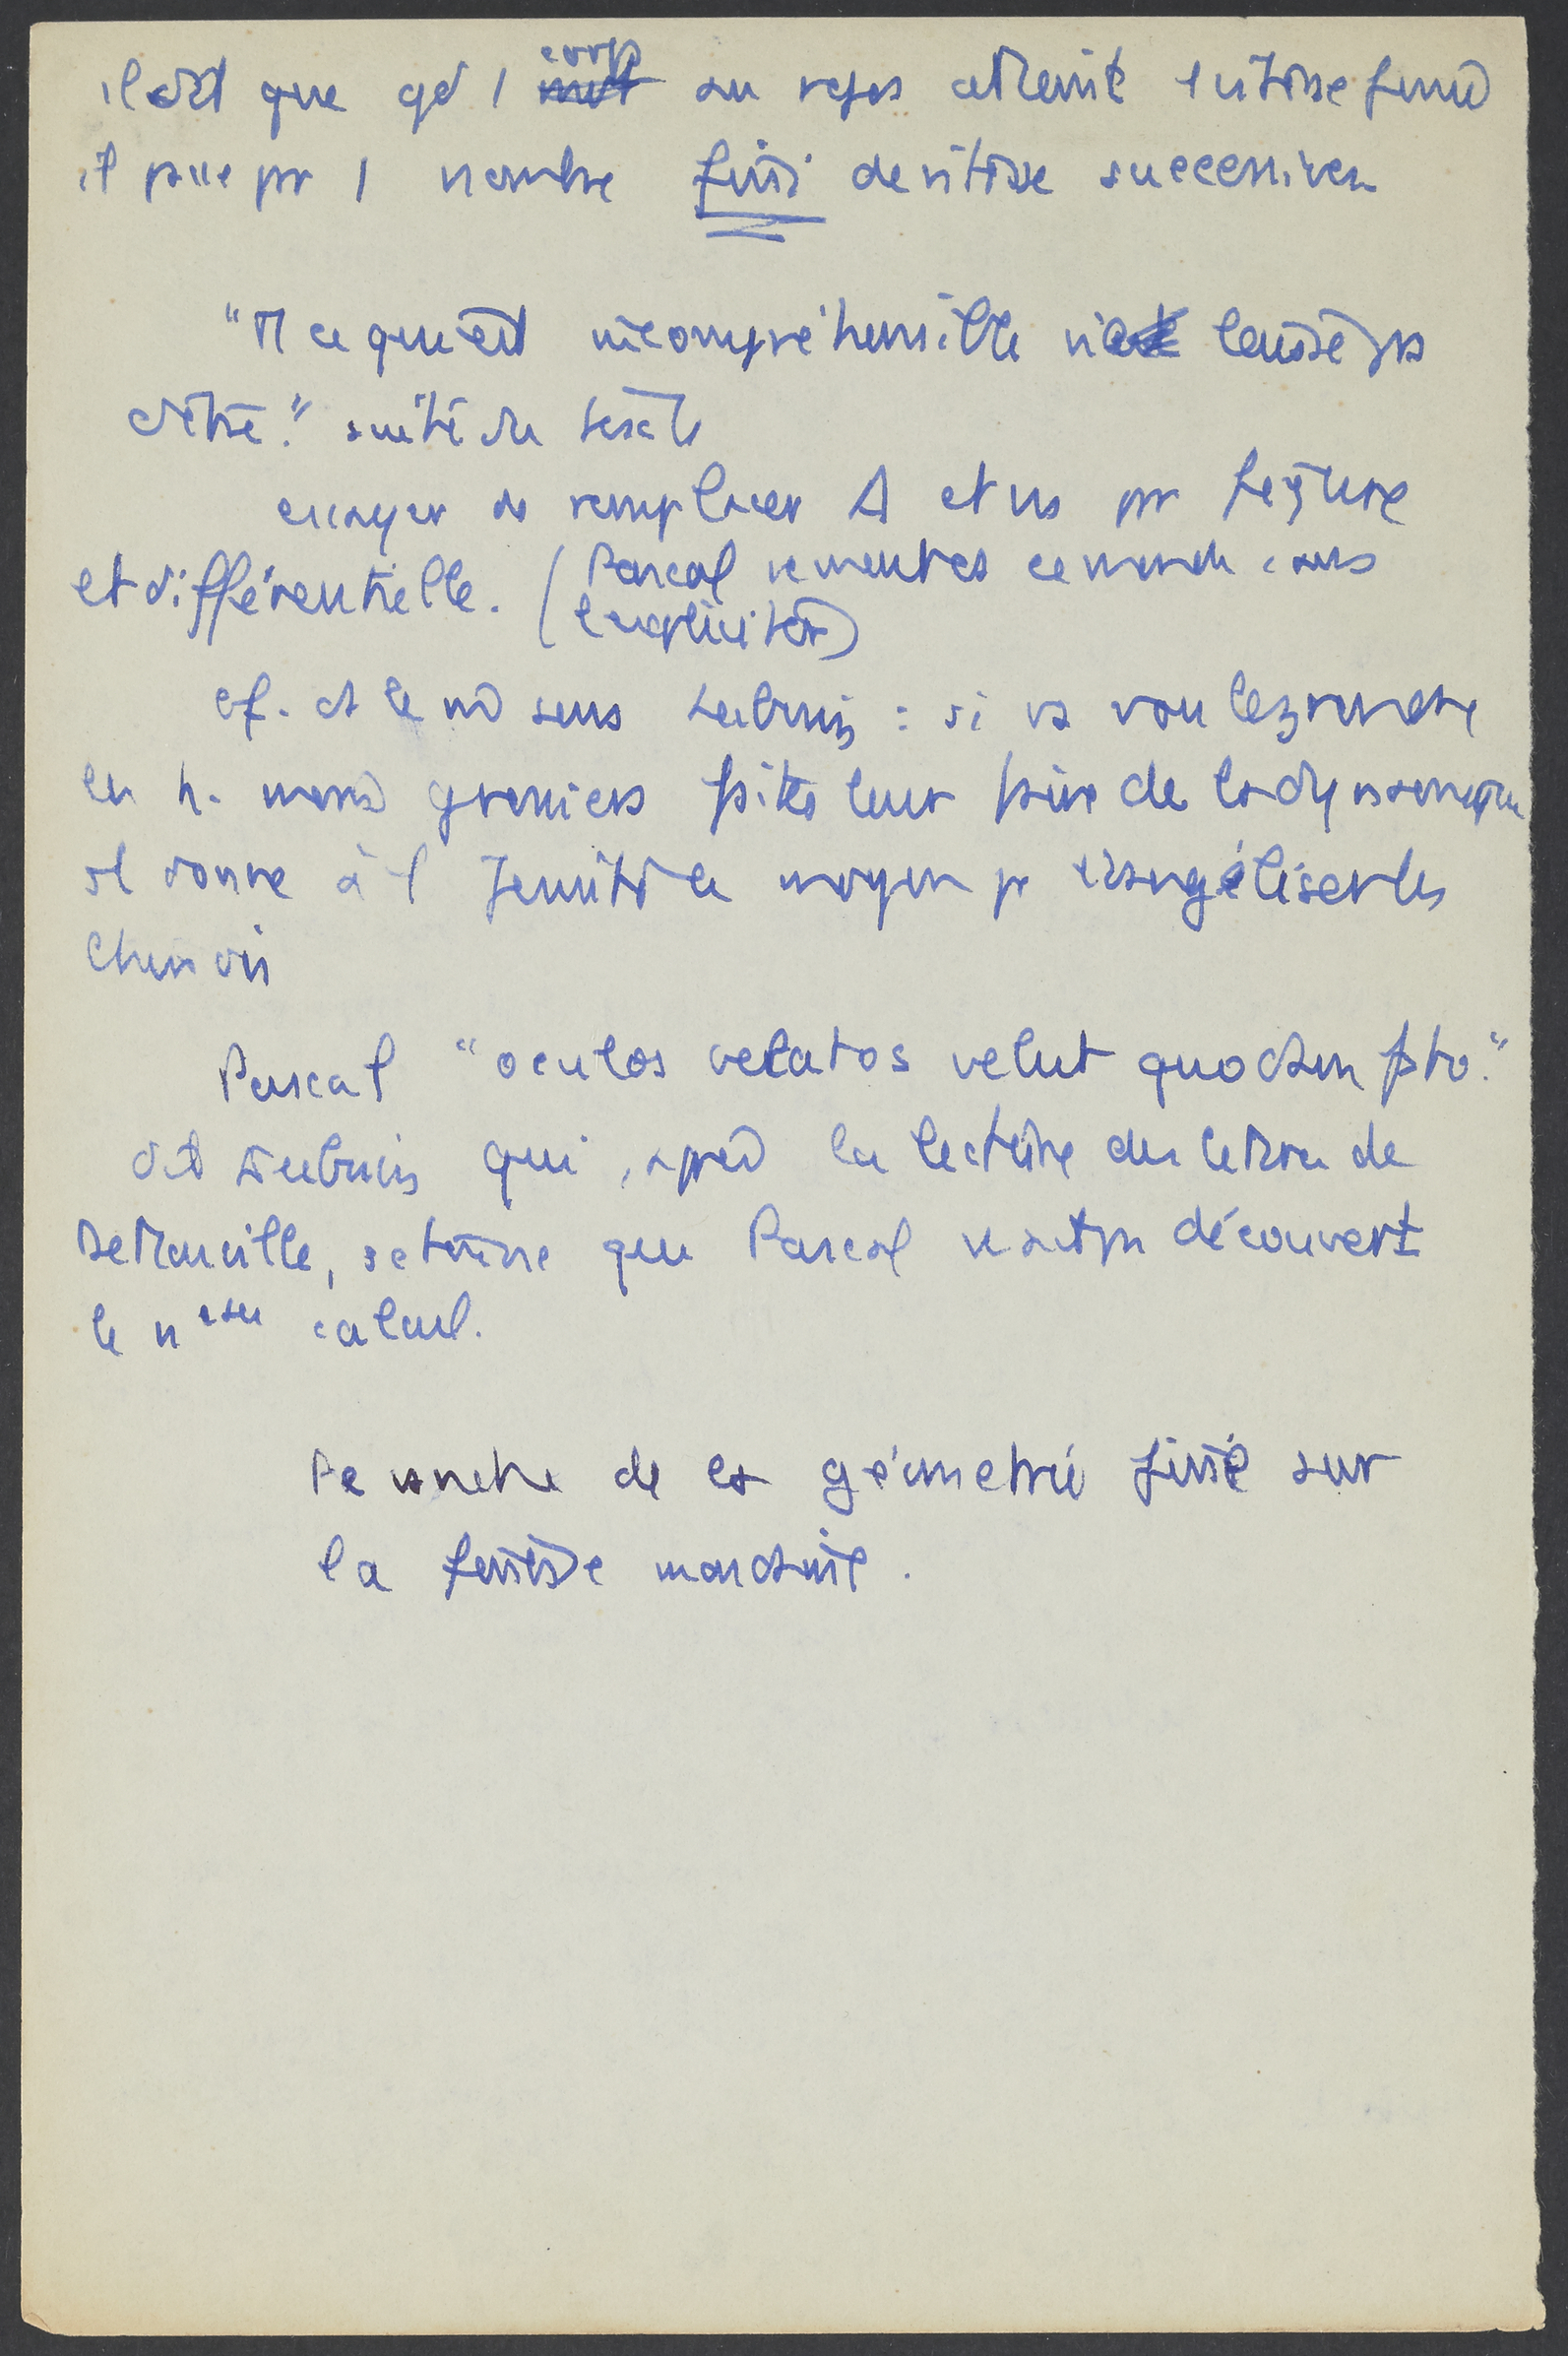 il dit que qd 1 corps au repos atteint 1 vitesse finie
il passe par 1 nombre fini de vitesse successives
"Tt ce qui est incompréhensible ne laisse pas
d'être." suite du texte
essayer de remplacer et ns par figure
et différentielle. (Pascal ce monde sans
l'expliciter)
cf. ds le md sens Leibniz : si vs voulez rendre
les h. moins grossiers faites leur faire de la dynamique
il donne à 1 Jésuite le moyen pr évangéliser les
Chinois
Pascal "oculos velatos velut quodam fato."
dit Leibniz qui, après la lecture des lettres de
Dettonville, s'étonne que Pascal n'ait pas découvert
le nveau calcul.
de la géométrie finie sur
la finesse mondaine.